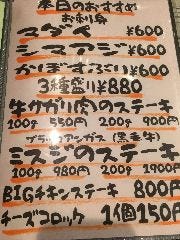 本日のおすすめ
お刺身
マダイ ¥600
シマアジ ¥600
¥600
3種盛り ¥880
牛カイノミ肉のステーキ
100g 550円 200g 900円
ブラックアンガス(黒毛牛)
ミスジのステーキ
100g 980円 200g 1900円
BIGチキンステーキ 800円
チーズコロッケ 1個150円